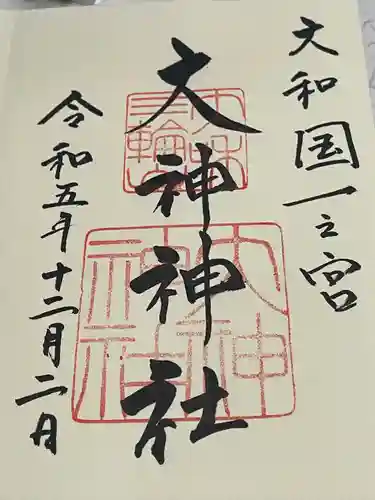 大和国一之宮
大神神社
令和五年十二月二日
三輪明神
大神神社